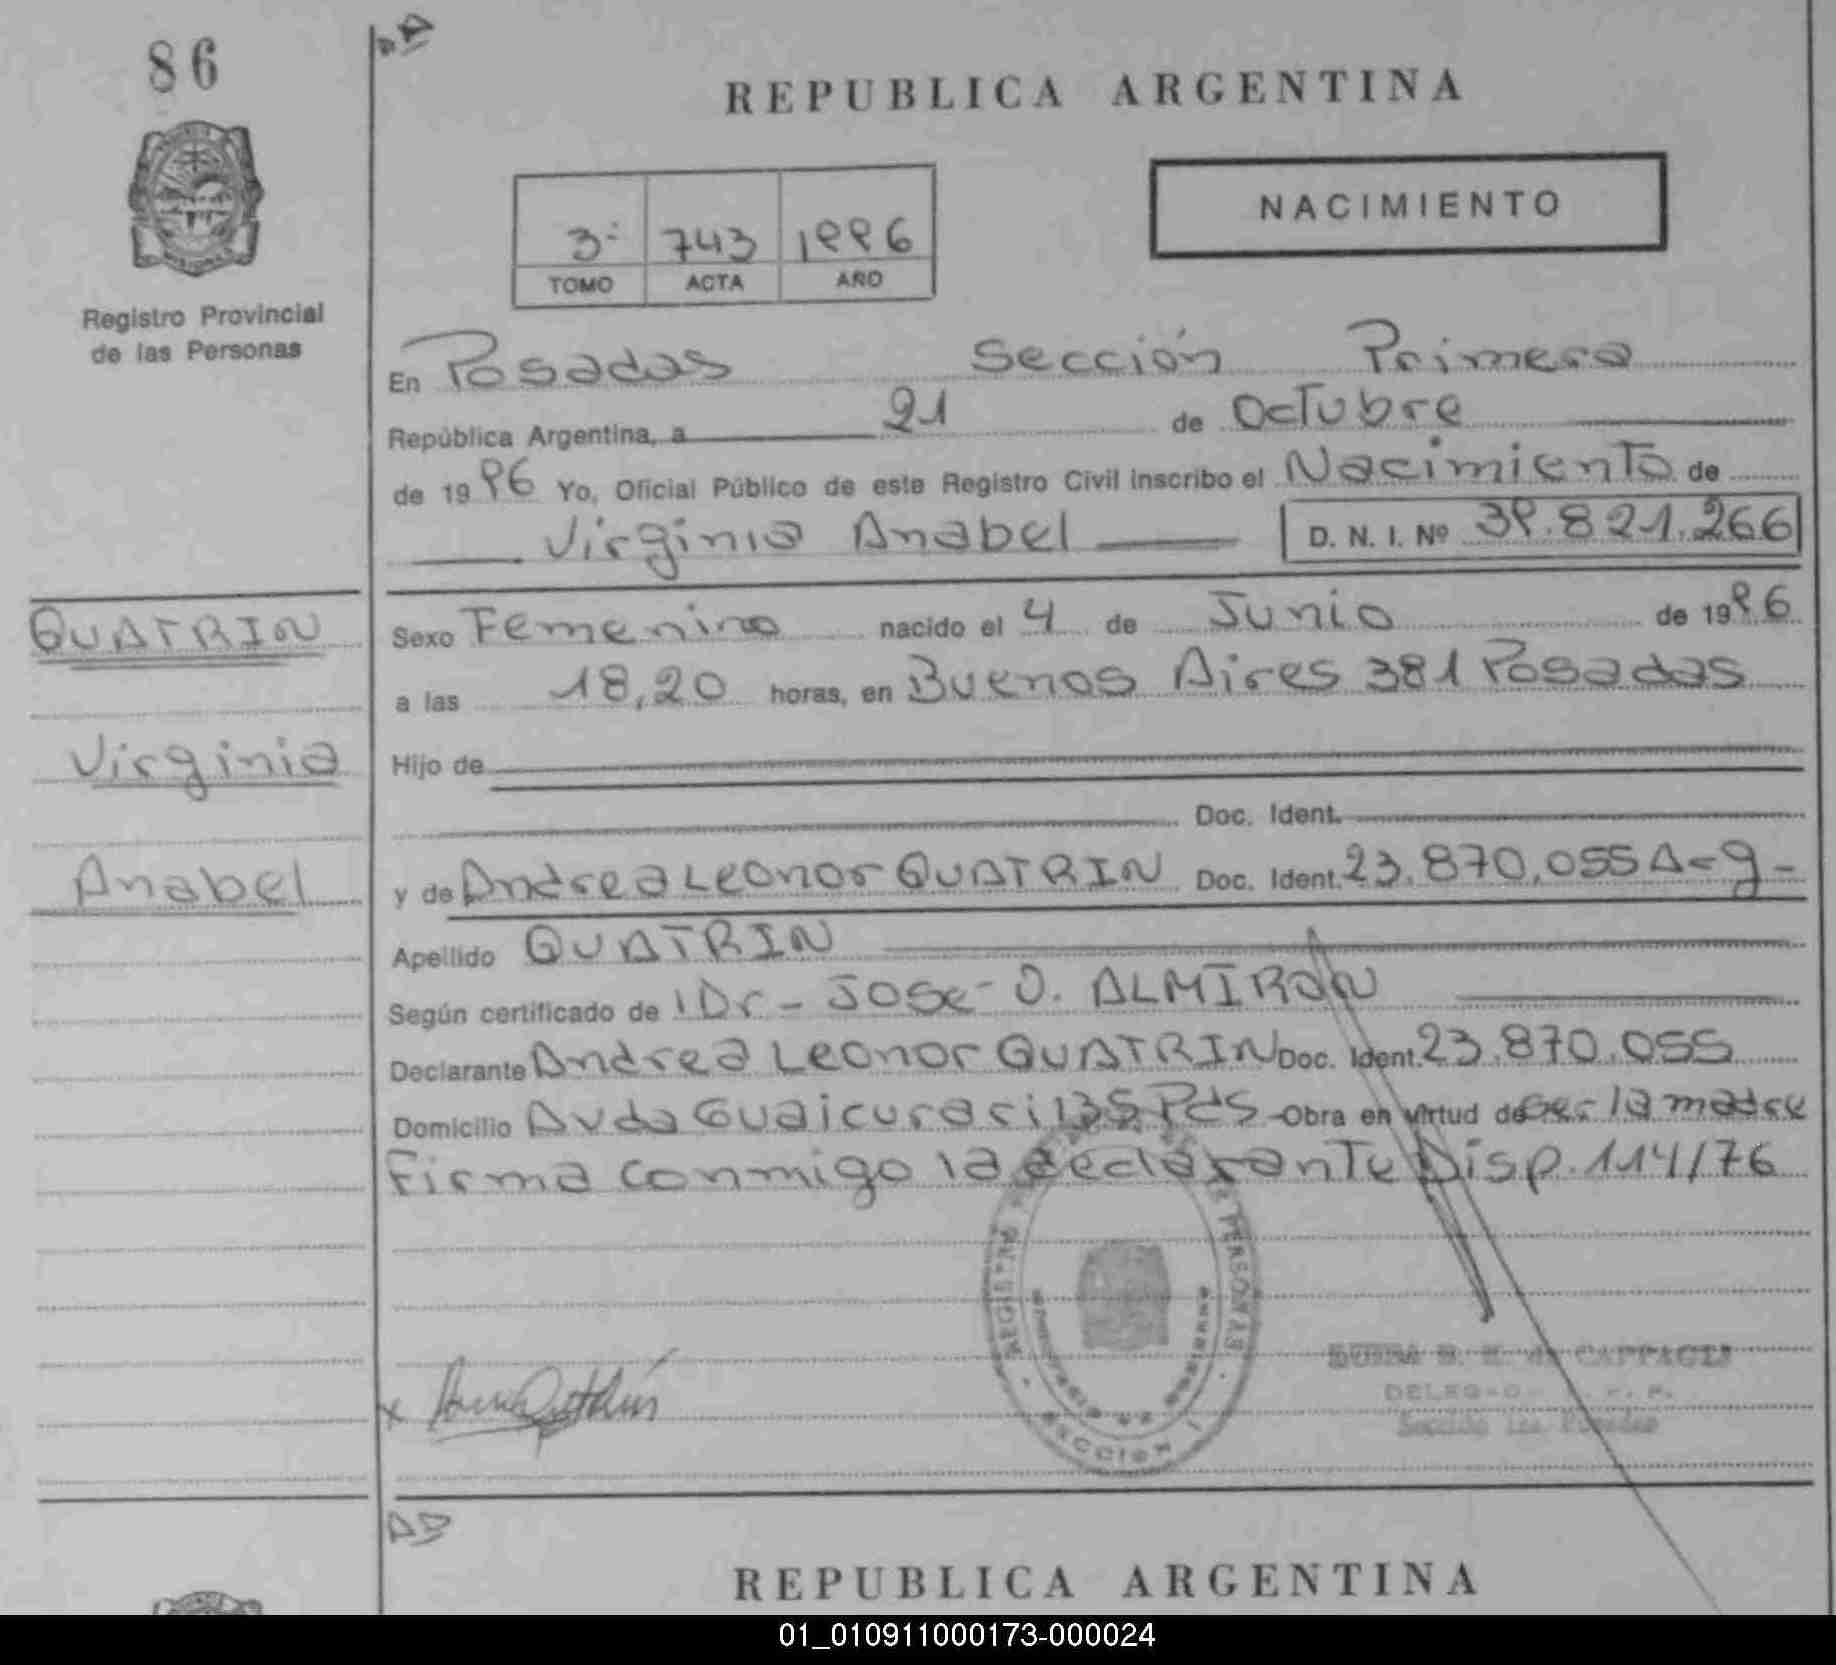 86
REPUBLICA ARGENTINA
NACIMIENTO
3º 743 1996
TOMO ACTA AÑO
Registro Provincial
de las Personas
En Posadas Sección Primera
República Argentina, a 21 de Octubre
de 1996 Yo, Oficial Público de este Registro Civil inscribo el Nacimiento de
Virginia Anabel D. N. I. Nº 39.821.266
QUATRIN
Sexo Femenino nacido el 4 de Junio de 1996
a las 18,20 horas, en Buenos Aires 381 Posadas
Virginia
Hijo de
Doc. Ident.
Anabel
y de Andrea Leonor QUATRIN Doc. Ident. 23.870.055 Arg-
Apellido QUATRIN
Según certificado de Dr- Jose O. ALMIRON
Declarante Andrea Leonor QUATRIN Doc. Ident. 23.870.055
Domicilio Avda Guaicurari 135 Pds Obra en virtud de ser la madre
Firma conmigo la declarante Disp. 114/76
REGISTRO DE PERSONAS
SECCION 1
de CAPPAGLI
Sección 1ra. Posadas
REPUBLICA ARGENTINA
01_010911000173-000024